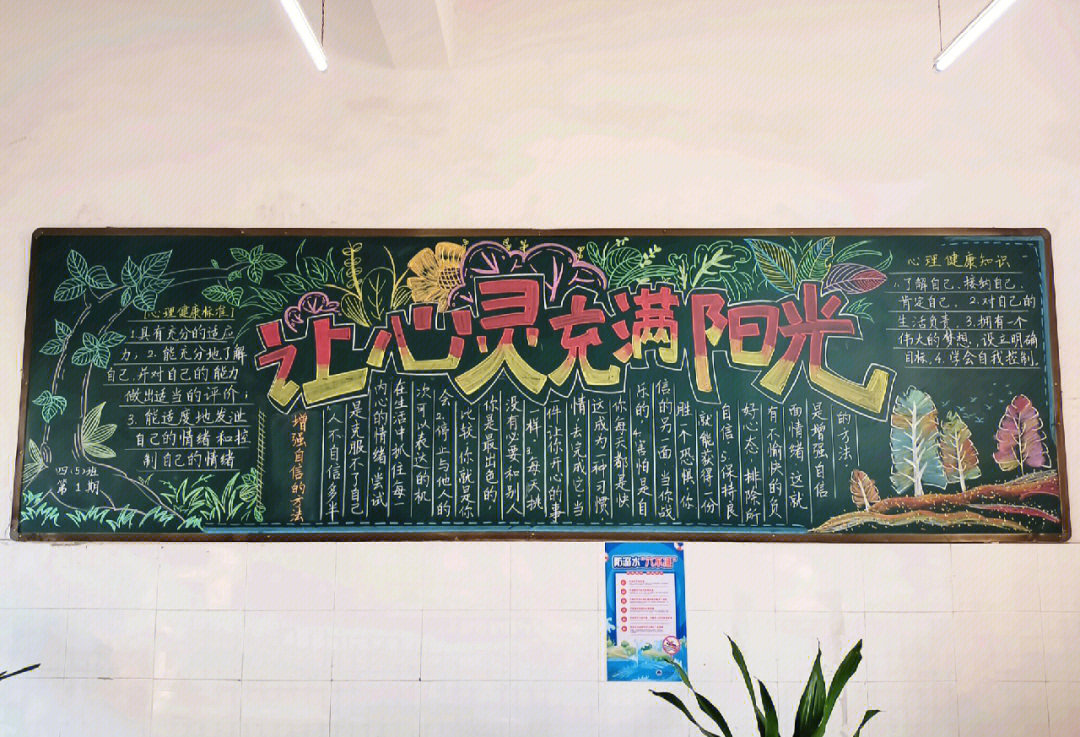 让心灵充满阳光
心理健康标准
1.具有充分的适应
力，2.能充分地了解
自己，并对自己的能力
做出适当的评价；
3.能适度地发泄
自己的情绪和控
制自己的情绪
四(5)班
第1期
增强自信的方法
人不自信多半
是克服不了自己
内心的情绪，尝试
在生活中抓住每一
次可以表达的机
会.2.停止与他人的
比较，你就是你
你是最出色的，
没有必要和别人
一样.3.每天挑
一件让你开心的事
情去完成它，当
这成为一种习惯，
你每天都是快
乐的.4.害怕是自
信的另一面，当你战
胜一个恐惧，你
就能获得一份
自信.5.保持良
好心态，排除所
有不愉快的负
面情绪，这就
是增强自信
的方法.
心理健康知识
1.了解自己，接纳自己，
肯定自己，2.对自己的
生活负责，3.拥有一个
伟大的梦想，设立明确
目标，4.学会自我控制.
防溺水"六不准"